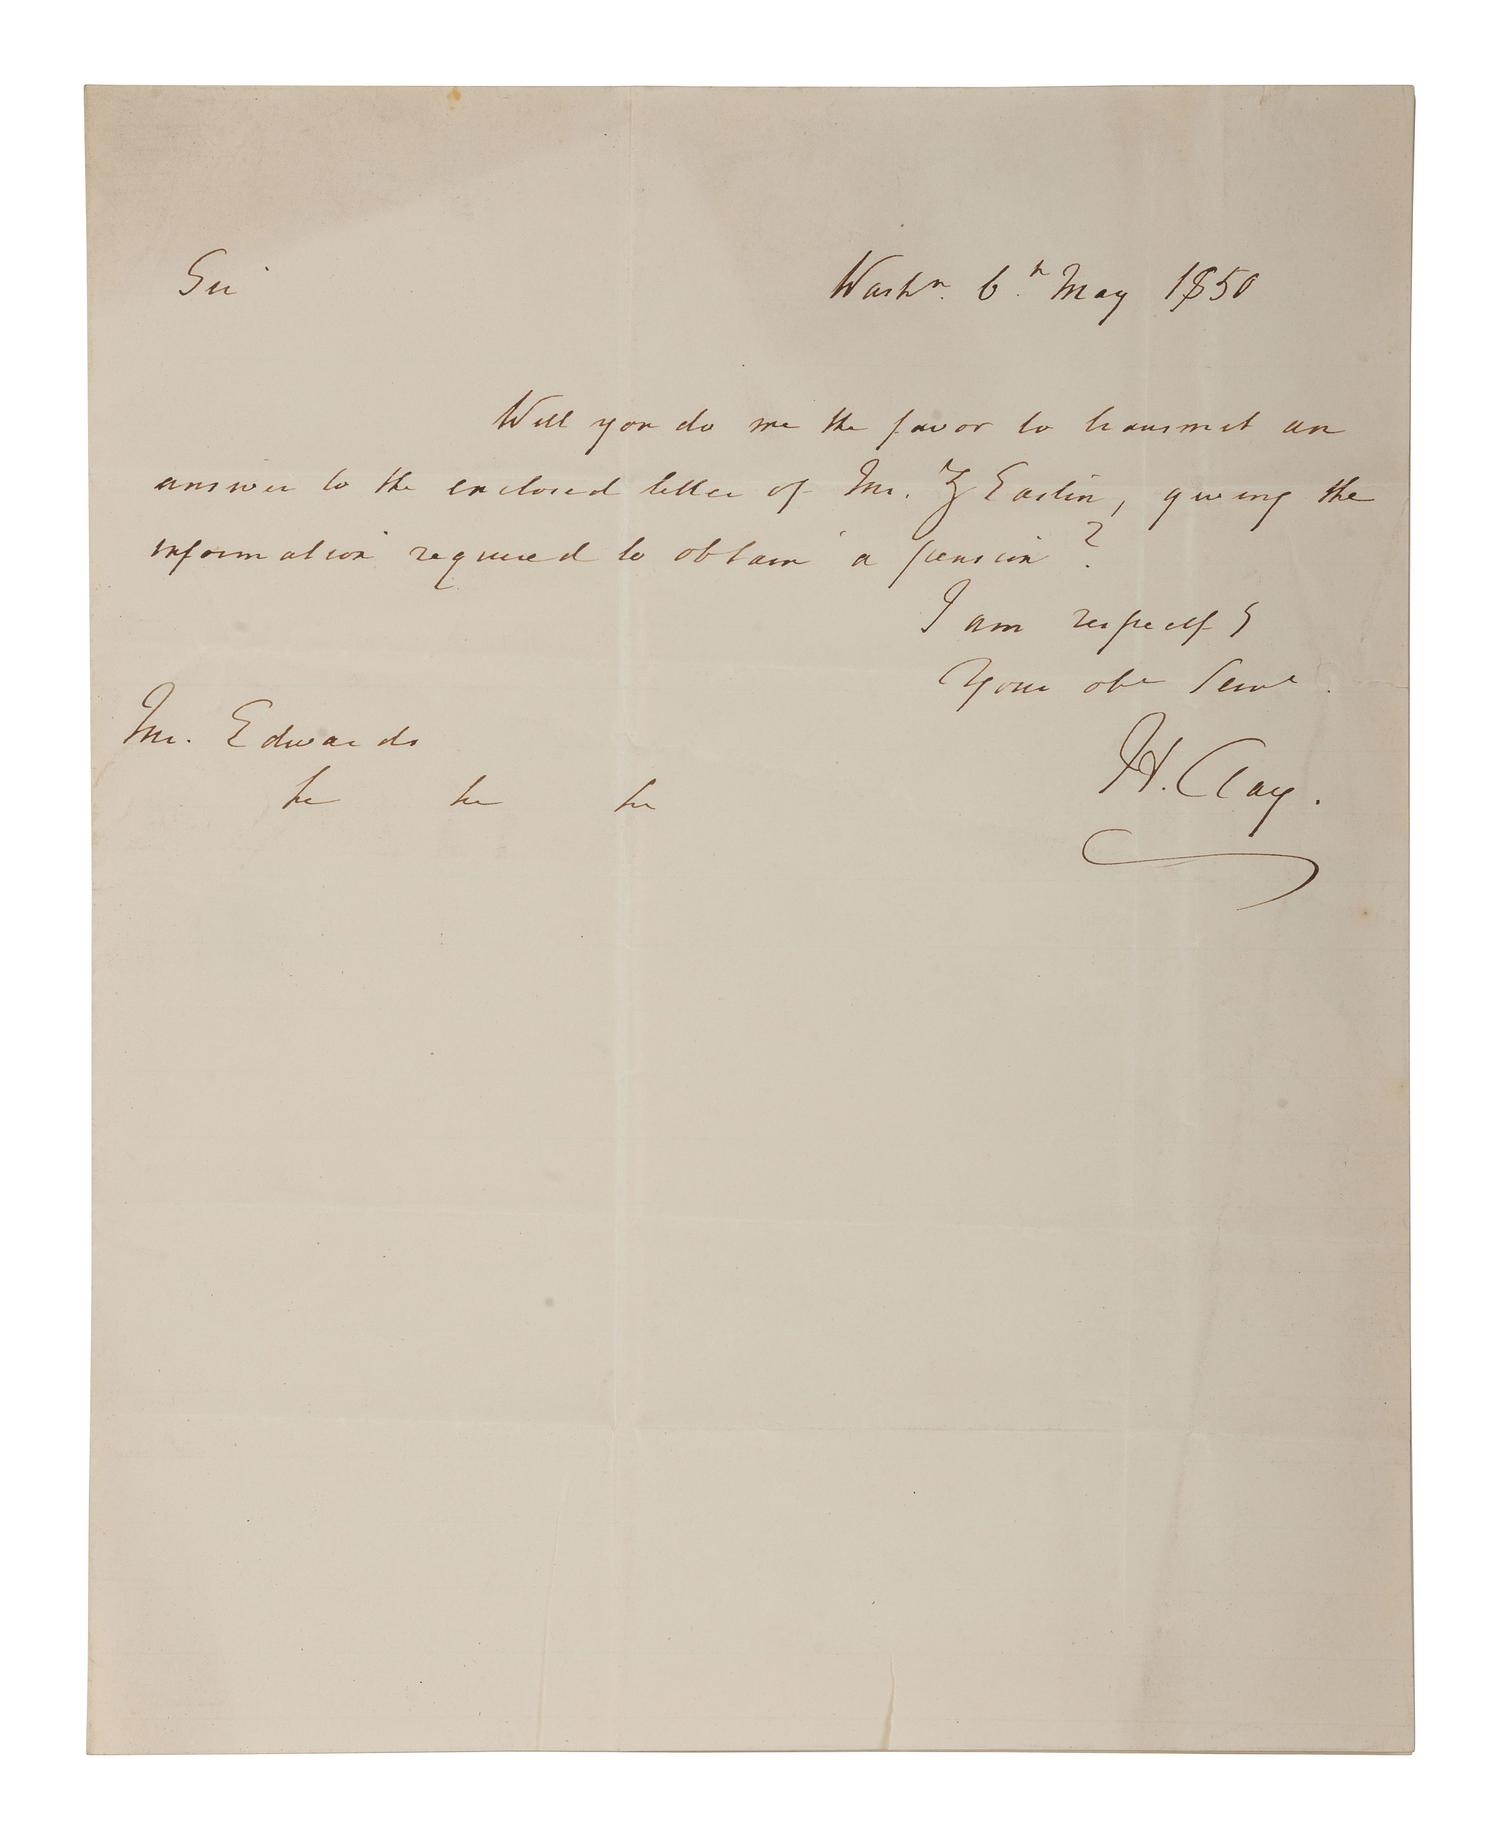 Sir
Washn. 6.h May 1850
Will you do me the favor to transmit an
answer to the enclosed letter of Mr. Z Eastin, giving the
information required to obtain a pension?
I am respectfy
Your obt Servt.
H. Clay.
Mr. Edwards
&c &c &c